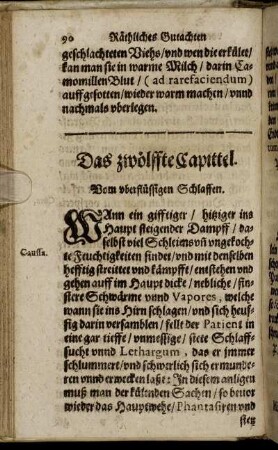 90 Räthliches Gutachten
geschlachteten Viehs/vnd wen die erkület/
kan man sie in warme Milch/darin Ca-
momillen Blut/(ad rarefaciendum)
auffgesotten/wieder warm machen/vnnd
nachmals vberlegen.
Das zwölffte Capittel.
Vom vberflüssigen Schlaffen.
WAnn ein gifftiger/hitziger ins
Haupt steigender Dampff/da-
selbst viel Schleims vñ ungekoch-
Caussa.
te Feuchtigkeiten findet/vnd mit denselben
hefftig streittet vnd kämpfft/entstehen vnd
gehen auff im Haupt dicke/nebliche/fin-
stere Schwärme vnnd Vapores, welche
wann sie ins Hirn schlagen/vnd sich heuf-
fig darin versamblen/fellt der Patient in
eine gar tieffe/vnmessige/stete Schlaff-
sucht vnnd Lethargum, das er jmmer
schlummert/vnd schwerlich sich ermunde-
ren vnnd erwecken laßt: In diesem anligen
muß man der kültnden Sachen/so beuor
wieder das Hauptwehe/Phantasiren vnd
stetz